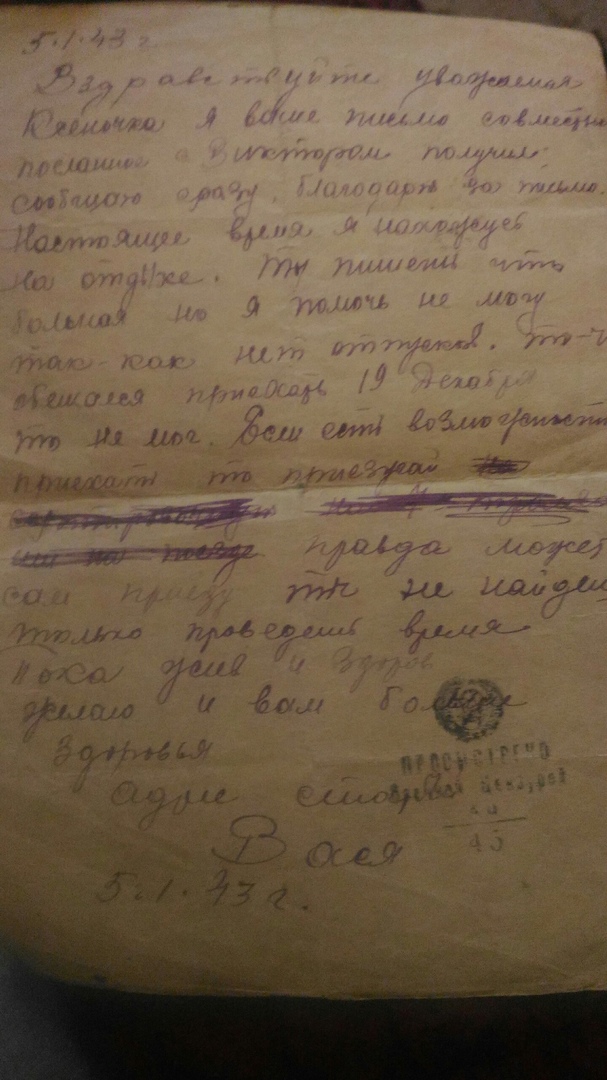 5.1.43 г.
Вздравствуйте уважаемая
Ксеночка я ваше письмо совместн
посланное с Виктором получил
сообщаю сразу, благодарю за письмо.
Настоящее время я нахожусь
на отдыхе. Ты пишешь что
больная но я помочь не могу
так-как нет отпусков. то-ч
обещался приехать 19 Декабря
то не мог. Если есть возможность
приехать то приезжай
правда может
сам приеду ты не найдеш
только проведешь время
Пока жив и Здоров
желаю и вам больше
Здоровья
адрес старый
Вася
5.1.43 г.
ПРОСМОТРЕНО
Военной Цензурой
45